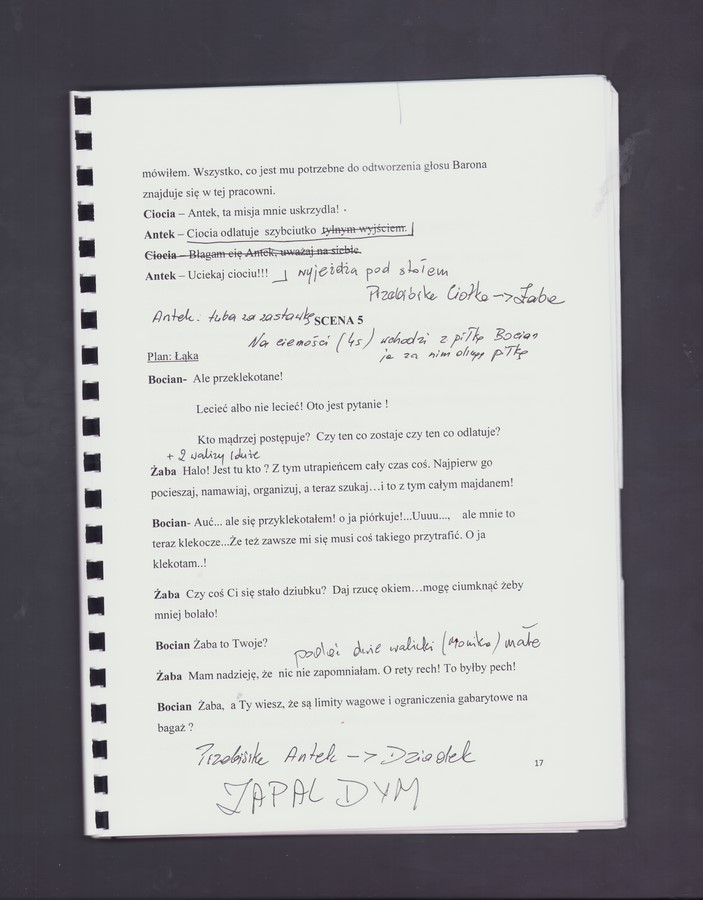 mówiłem. Wszystko, co jest mu potrzebne do odtworzenia głosu Barona
znajduje się w tej pracowni.
Ciocia – Antek, ta misja mnie uskrzydla!
Antek – Ciocia odlatuje szybciutko tylnym wyjściem.
Ciocia – Błagam cię Antek, uważaj na siebie.
Antek – Uciekaj ciociu!!! wyjeżdża pod stołem
Przebiórka Ciotka -> Żaba
Antek. tuba za zastawkę SCENA 5
Na ciemości (4s) wchodzi z piłką Bocian
Plan: Łąka ja za nim piłkę
Bocian- Ale przeklekotane!
Lecieć albo nie lecieć! Oto jest pytanie !
Kto mądrzej postępuje? Czy ten co zostaje czy ten co odlatuje?
+ 2 walizy duże
Żaba Halo! Jest tu kto ? Z tym utrapieńcem cały czas coś. Najpierw go
pocieszaj, namawiaj, organizuj, a teraz szukaj…i to z tym całym majdanem!
Bocian- Auć... ale się przyklekotałem! o ja piórkuje!...Uuuu..., ale mnie to
teraz klekocze...Że też zawsze mi się musi coś takiego przytrafić. O ja
klekotam..!
Żaba Czy coś Ci się stało dziubku? Daj rzucę okiem…mogę ciumknąć żeby
mniej bolało!
Bocian Żaba to Twoje?
podać dwie walizki (Monika) małe
Żaba Mam nadzieję, że nic nie zapomniałam. O rety rech! To byłby pech!
Bocian Żaba, a Ty wiesz, że są limity wagowe i ograniczenia gabarytowe na
bagaż ?
Przebiórka Antek -> Dziadek
17
ZAPAL DYM